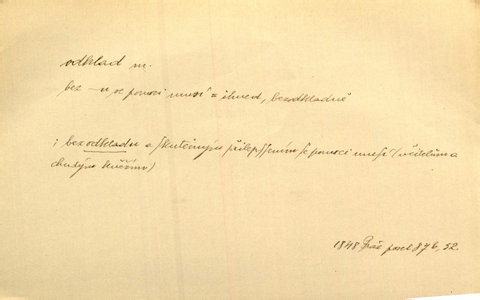 odklad m.
bez -u se pomoci musí = ihned, bezodkladně
; bez odkladu a skutečným přilepssením se pomoci musí (učitelům a
chudým kněžím)
1848 Praž. posel 87 b, 52.